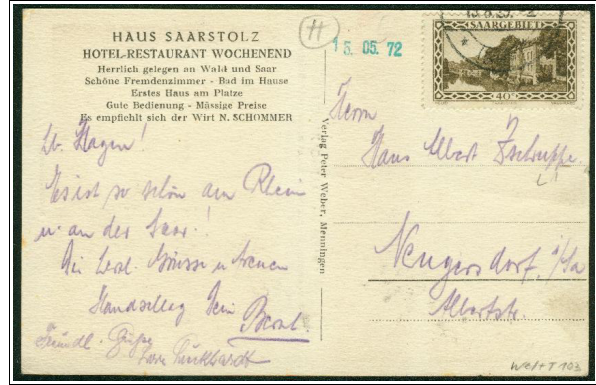 HAUS SAARSTOLZ
HOTEL-RESTAURANT WOCHENEND
Herrlich gelegen an Wald und Saar
Schöne Fremdenzimmer - Bad im Hause
Erstes Haus am Platze
Gute Bedienung - Mässige Preise
Es empfiehlt sich der Wirt N. SCHOMMER
H
15. 05. 72
SAARGEBIET
40
Lb. Hagen!
Es ist so schön am Rhein
u. an der Saar!
Die herzl. Grüsse u. treuen
Handschlag Dein
Freundl. Grüße
Verlag Peter Weber, Menningen
Herrn
Hans Albert
Neugersdorf i/Sa
Albertstr.